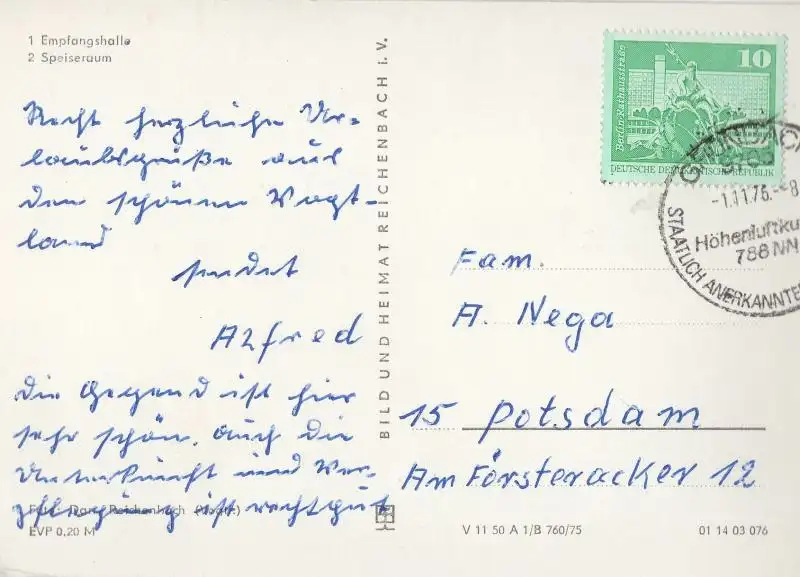 1 Empfangshalle
2 Speiseraum
Recht herzliche Ur=
laubsgrüße aus
dem schönen Vogt-
land
sendet
Alfred
Die Gegend ist hier
sehr schön. Auch die
Unterkunft und Ver-
pflegung ist recht gut
Reichenbach
EVP 0,20 M
BILD UND HEIMAT REICHENBACH i. V.
Berlin-Rathausstraße
10
DEUTSCHE DEMOKRATISCHE REPUBLIK
-1.11.76.--8
Höhenluftku
788 NN
STAATLICH ANERKANNTE
Fam.
A. Nega
15 Potsdam
Am Försteracker 12
V 11 50 A 1/B 760/75
01 14 03 076